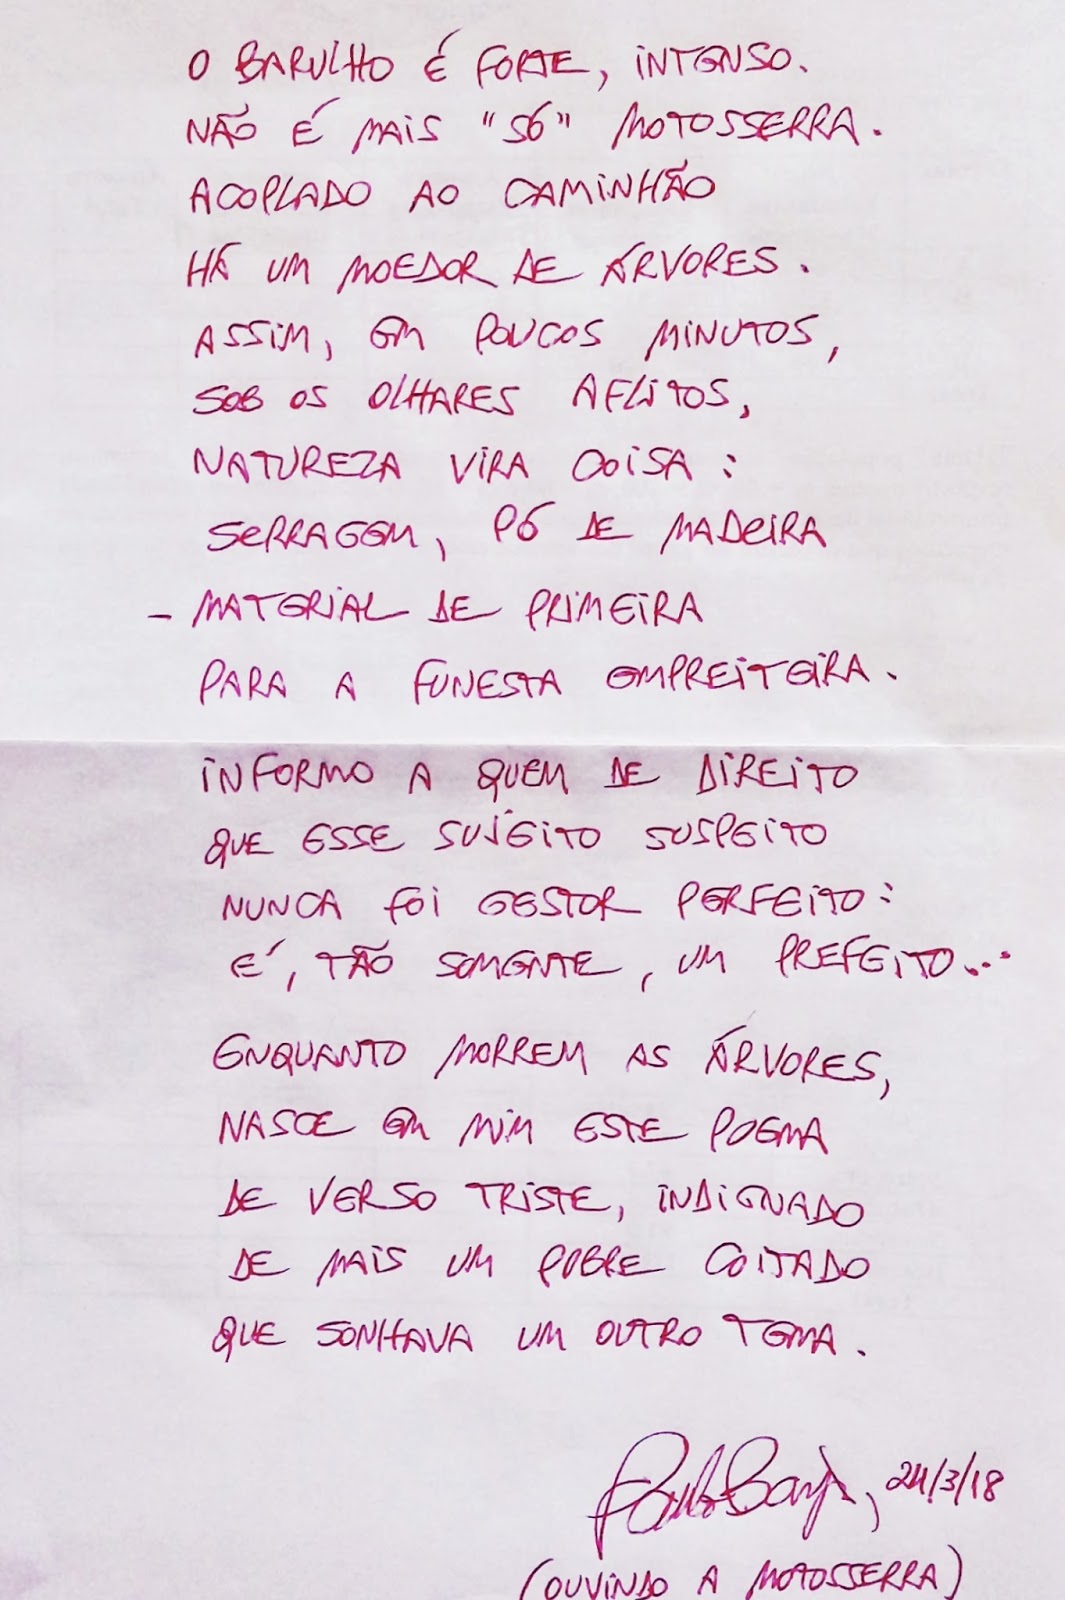 O BARULHO É FORTE, INTENSO.
NÃO É MAIS "SÓ" MOTOSSERRA.
ACOPLADO AO CAMINHÃO
HÁ UM MOEDOR DE ÁRVORES.
ASSIM, EM POUCOS MINUTOS,
SOB OS OLHARES AFLITOS,
NATUREZA VIRA COISA:
SERRAGEM, PÓ DE MADEIRA
- MATERIAL DE PRIMEIRA
PARA A FUNESTA EMPREITEIRA.
INFORMO A QUEM DE DIREITO
QUE ESSE SUJEITO SUSPEITO
NUNCA FOI GESTOR PERFEITO:
É, TÃO SOMENTE, UM PREFEITO...
ENQUANTO MORREM AS ÁRVORES,
NASCE EM MIM ESTE POEMA
DE VERSO TRISTE, INDIGNADO
DE MAIS UM POBRE COITADO
QUE SONHAVA UM OUTRO TEMA.
Paulo Barja, 24/3/18
(OUVINDO A MOTOSSERRA)